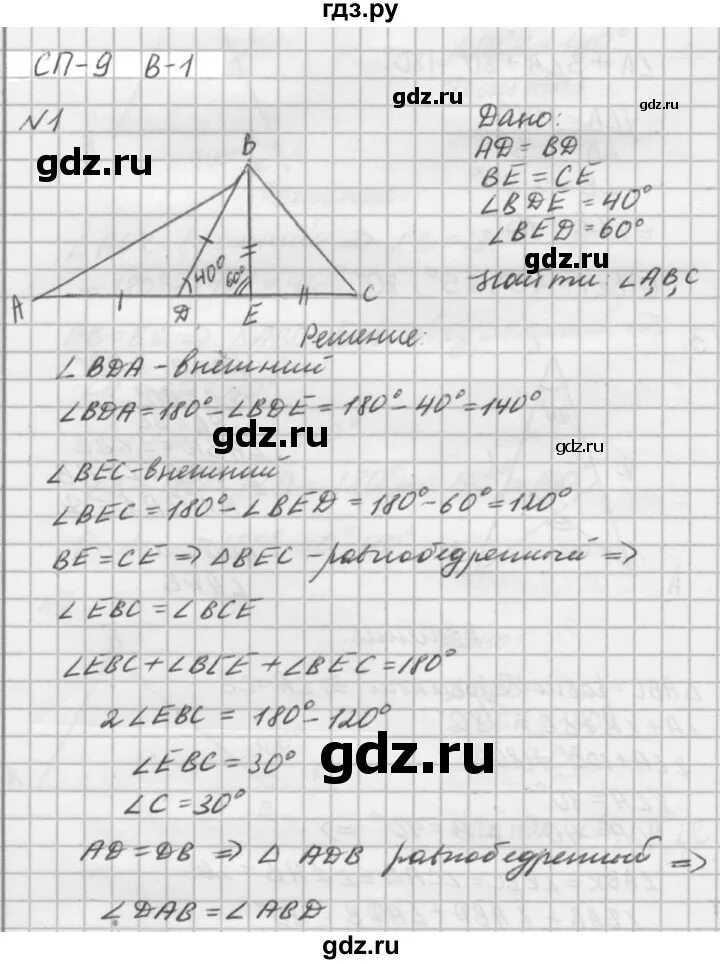 гдз.ру
СП-9 В-1
gdz.ru
№1
gdz.ru
Дано:
AD = BD
BE = CE
∠BDE = 40°
∠BED = 60°
gdz.ru
Найти: ∠A, B, C
gdz.ru
B
A
D
E
C
40°
60°
Решение:
∠BDA - внешний
∠BDA = 180° - ∠BDE = 180° - 40° = 140°
gdz.ru
gdz.ru
∠BEC - внешний
∠BEC = 180° - ∠BED = 180° - 60° = 120°
BE = CE => △BEC - равнобедренный =>
gdz.ru
∠EBC = ∠BCE
∠EBC + ∠BCE + ∠BEC = 180°
2∠EBC = 180° - 120°
∠EBC = 30°
gdz.ru
∠C = 30°
AD = DB => △ ADB равнобедренный =>
∠DAB = ∠ABD
gdz.ru
gdz.ru